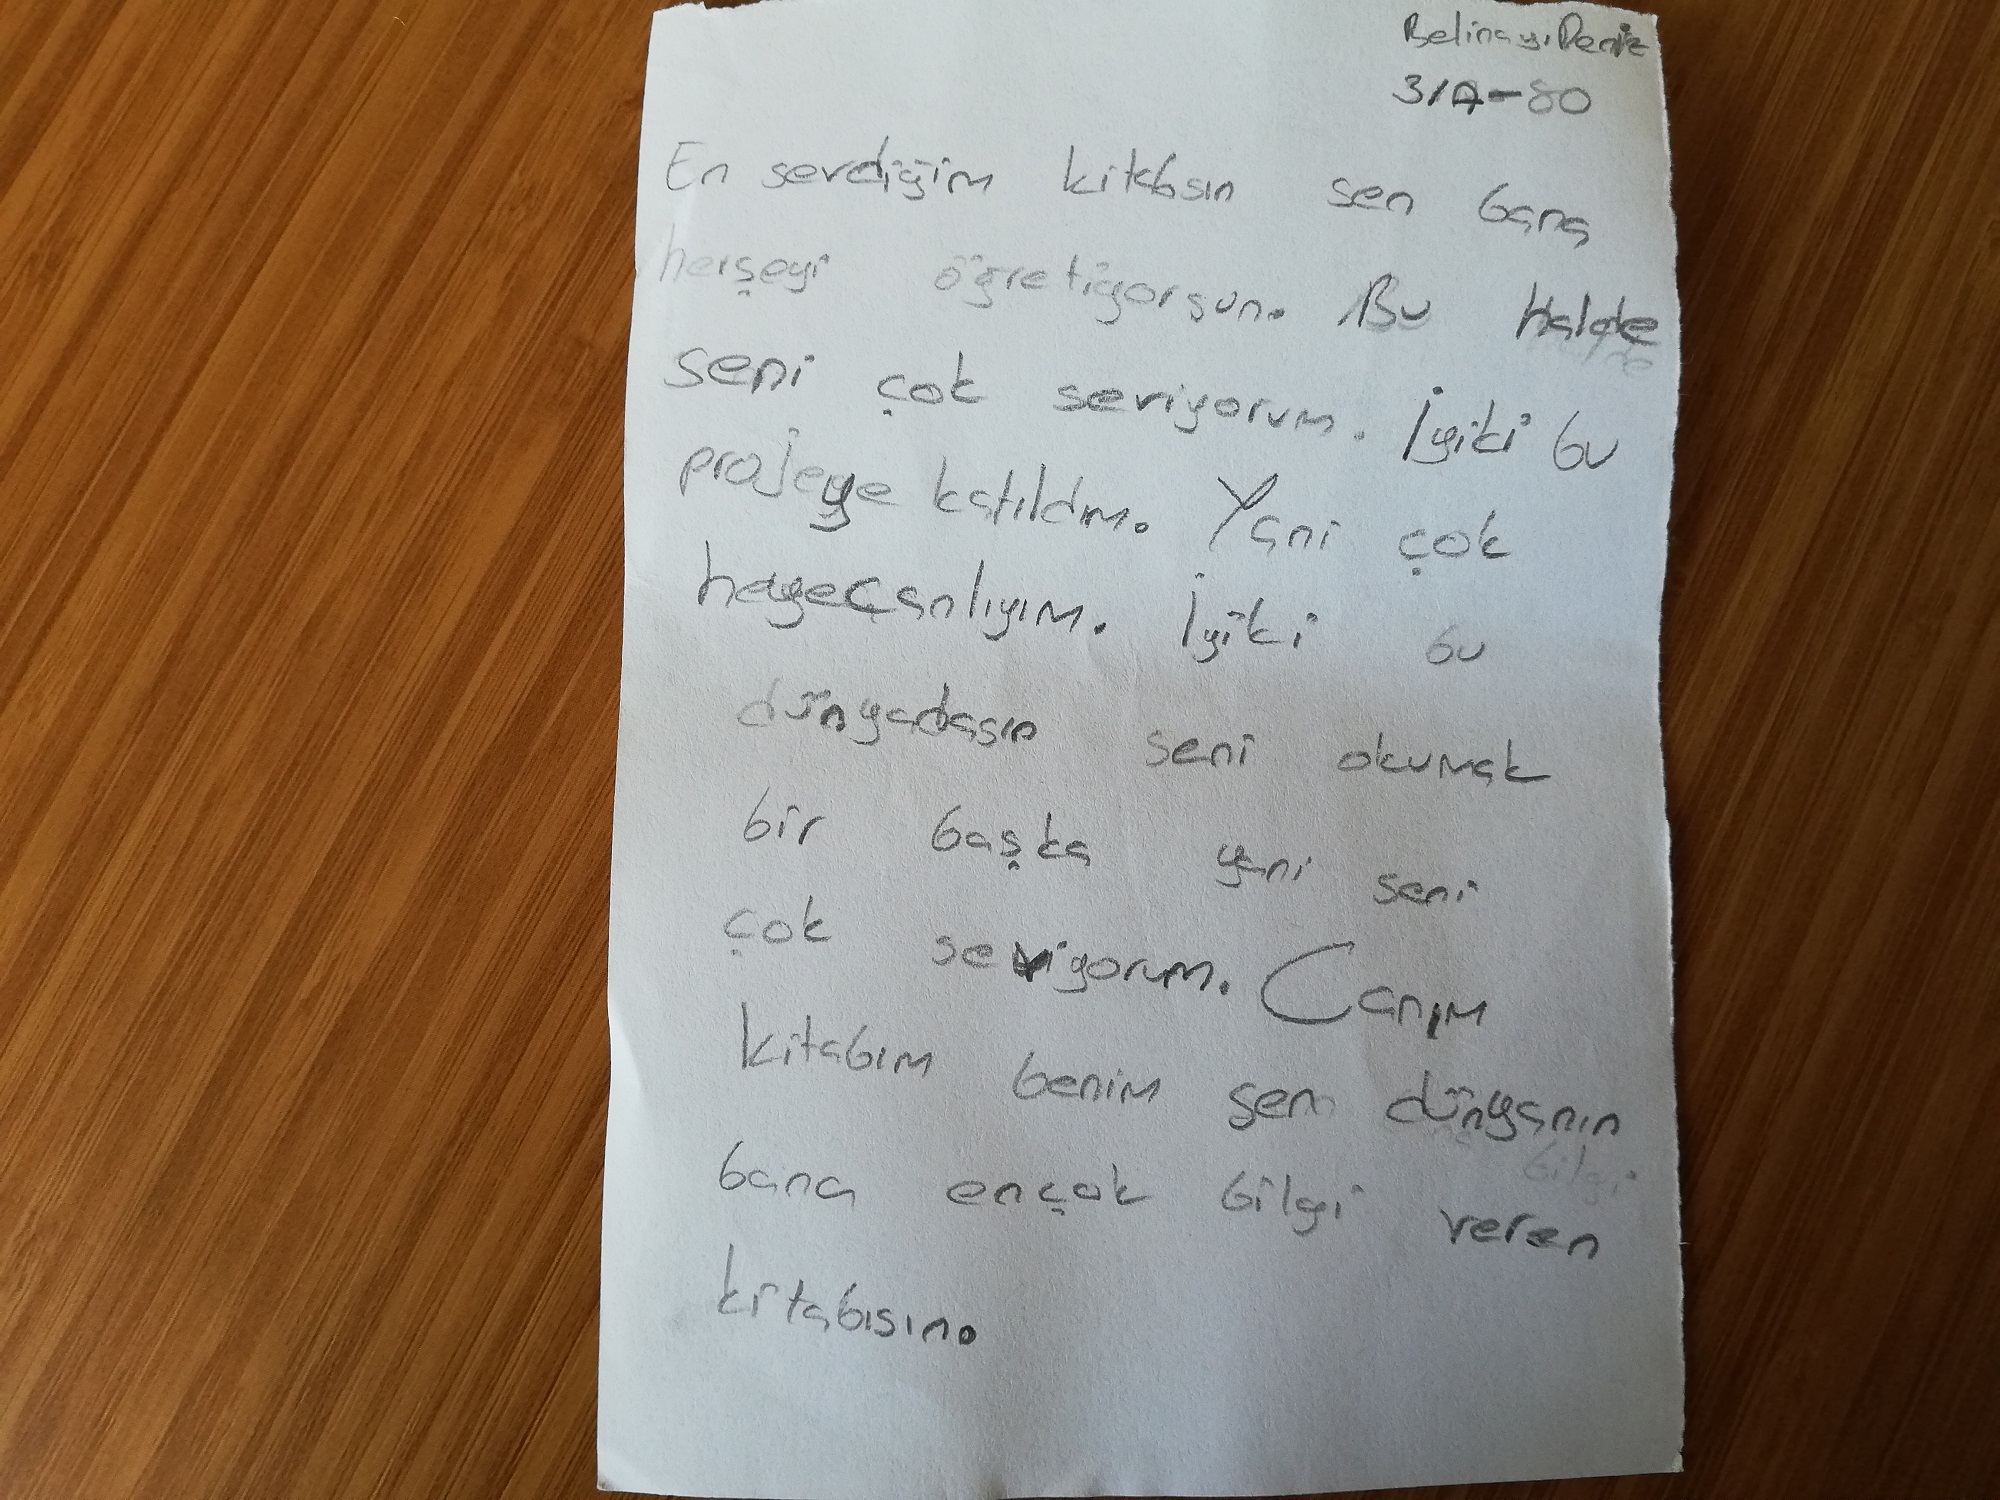 Belinay Deniz
3/A-80
En sevdiğim kitabsın sen bana
herşeyi öğretiyorsun. Bu Halde
seni çok seviyorum. İyiki bu
projeye katıldım. Yani çok
heyecanlıyım. İyiki bu
dünyadasın seni okumak
bir başka yani seni
çok seviyorum. Canım
kitabım benim sen dünyanın
bana ençok bilgi veren
kitabısın.